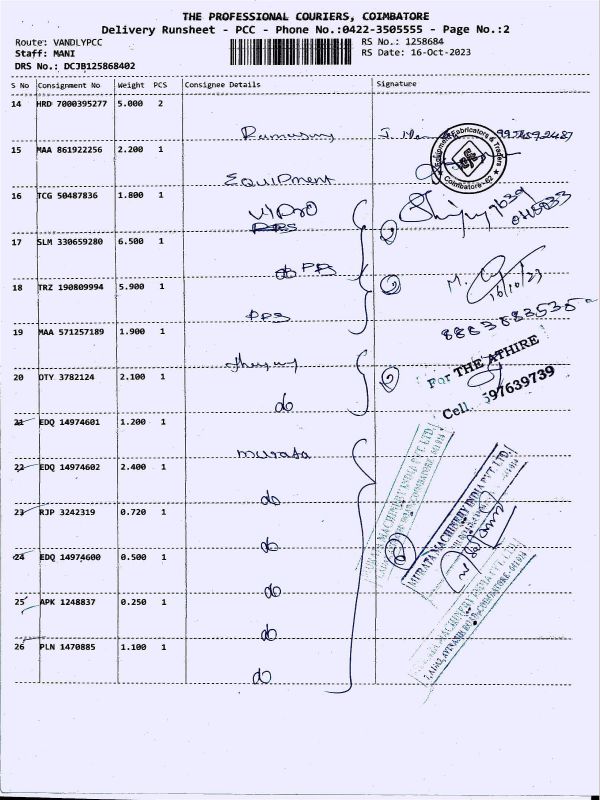 THE PROFESSIONAL COURIERS, COIMBATORE
Delivery Runsheet - PCC - Phone No.:0422-3505555 - Page No.:2
Route: VANDLYPCC RS No.: 1258684
Staff: MANI RS Date: 16-Oct-2023
DRS No.: DCJB125868402
S No Consignment No Weight PCS Consignee Details Signature
14 HRD 7000395277 5.000 2
15 MAA 861922256 2.200 1
Equipment Fabricators & Traders
Coimbatore-62
EQUIPMENT
16 TCG 50487836 1.800 1
17 SLM 330659280 6.500 1
do PPS
18 TRZ 190809994 5.900 1
M.
16/10/23
PPS
19 MAA 571257189 1.900 1
For THE ATHIRE
20 DTY 3782124 2.100 1
do
Cell.
21 EDQ 14974601 1.200 1
murata
22 EDQ 14974602 2.400 1
do
MURATA MACHINERY INDIA PVT. LTD.
23 RJP 3242319 0.720 1
do
24 EDQ 14974600 0.500 1
do
25 APK 1248837 0.250 1
do
26 PLN 1470885 1.100 1
do